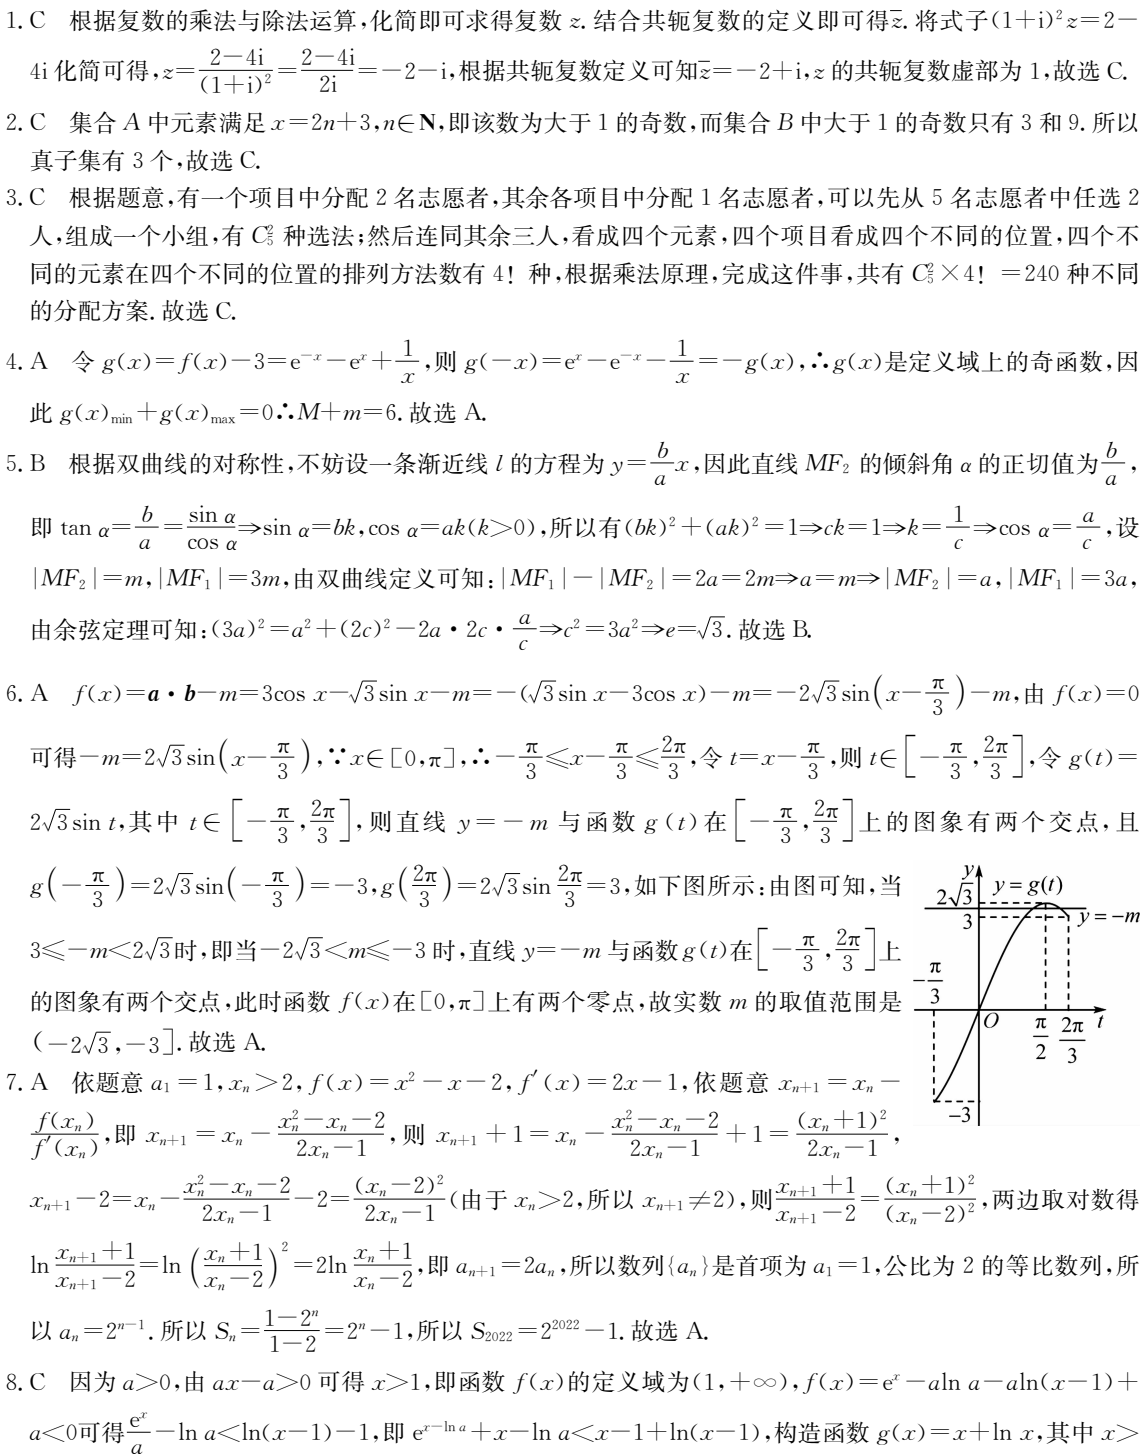 1. C　根据复数的乘法与除法运算,化简即可求得复数 z. 结合共轭复数的定义即可得z̄. 将式子(1+i)²z=2-
4i 化简可得,z=\frac{2-4i}{(1+i)²}=\frac{2-4i}{2i}=-2-i,根据共轭复数定义可知z̄=-2+i,z 的共轭复数虚部为 1,故选 C.
2. C　集合 A 中元素满足 x=2n+3,n∈N,即该数为大于 1 的奇数,而集合 B 中大于 1 的奇数只有 3 和 9. 所以
真子集有 3 个,故选 C.
3. C　根据题意,有一个项目中分配 2 名志愿者,其余各项目中分配 1 名志愿者,可以先从 5 名志愿者中任选 2
人,组成一个小组,有 C₅² 种选法;然后连同其余三人,看成四个元素,四个项目看成四个不同的位置,四个不
同的元素在四个不同的位置的排列方法数有 4! 种,根据乘法原理,完成这件事,共有 C₅²×4! =240 种不同
的分配方案. 故选 C.
4. A　令 g(x)=f(x)-3=e^{-x}-e^{x}+\frac{1}{x},则 g(-x)=e^{x}-e^{-x}-\frac{1}{x}=-g(x),∴g(x)是定义域上的奇函数,因
此 g(x)_{min}+g(x)_{max}=0∴M+m=6. 故选 A.
5. B　根据双曲线的对称性,不妨设一条渐近线 l 的方程为 y=\frac{b}{a}x,因此直线 MF₂ 的倾斜角 α 的正切值为\frac{b}{a},
即 tan α=\frac{b}{a}=\frac{sin α}{cos α}⇒sin α=bk,cos α=ak(k>0),所以有(bk)²+(ak)²=1⇒ck=1⇒k=\frac{1}{c}⇒cos α=\frac{a}{c},设
|MF₂|=m,|MF₁|=3m,由双曲线定义可知:|MF₁|-|MF₂|=2a=2m⇒a=m⇒|MF₂|=a,|MF₁|=3a,
由余弦定理可知:(3a)²=a²+(2c)²-2a·2c·\frac{a}{c}⇒c²=3a²⇒e=√3. 故选 B.
6. A　f(x)=a·b-m=3cos x-√3sin x-m=-(√3sin x-3cos x)-m=-2√3sin(x-\frac{π}{3})-m,由 f(x)=0
可得-m=2√3sin(x-\frac{π}{3}),∵x∈[0,π],∴-\frac{π}{3}≤x-\frac{π}{3}≤\frac{2π}{3},令 t=x-\frac{π}{3},则 t∈[-\frac{π}{3},\frac{2π}{3}],令 g(t)=
2√3sin t,其中 t∈[-\frac{π}{3},\frac{2π}{3}],则直线 y=-m 与函数 g(t)在[-\frac{π}{3},\frac{2π}{3}]上的图象有两个交点,且
g(-\frac{π}{3})=2√3sin(-\frac{π}{3})=-3,g(\frac{2π}{3})=2√3sin\frac{2π}{3}=3,如下图所示:由图可知,当
3≤-m<2√3时,即当-2√3<m≤-3 时,直线 y=-m 与函数g(t)在[-\frac{π}{3},\frac{2π}{3}]上
的图象有两个交点,此时函数 f(x)在[0,π]上有两个零点,故实数 m 的取值范围是
(-2√3,-3]. 故选 A.
y
2√3
y=g(t)
3
y=-m
-\frac{π}{3}
O
\frac{π}{2}
\frac{2π}{3}
t
-3
7. A　依题意 a₁=1,xₙ>2,f(x)=x²-x-2,f′(x)=2x-1,依题意 xₙ₊₁=xₙ-
\frac{f(xₙ)}{f′(xₙ)},即 xₙ₊₁=xₙ-\frac{xₙ²-xₙ-2}{2xₙ-1},则 xₙ₊₁+1=xₙ-\frac{xₙ²-xₙ-2}{2xₙ-1}+1=\frac{(xₙ+1)²}{2xₙ-1},
xₙ₊₁-2=xₙ-\frac{xₙ²-xₙ-2}{2xₙ-1}-2=\frac{(xₙ-2)²}{2xₙ-1}(由于 xₙ>2,所以 xₙ₊₁≠2),则\frac{xₙ₊₁+1}{xₙ₊₁-2}=\frac{(xₙ+1)²}{(xₙ-2)²},两边取对数得
ln\frac{xₙ₊₁+1}{xₙ₊₁-2}=ln(\frac{xₙ+1}{xₙ-2})²=2ln\frac{xₙ+1}{xₙ-2},即 aₙ₊₁=2aₙ,所以数列{aₙ}是首项为 a₁=1,公比为 2 的等比数列,所
以 aₙ=2^{n-1}. 所以 Sₙ=\frac{1-2ⁿ}{1-2}=2ⁿ-1,所以 S₂₀₂₂=2²⁰²²-1. 故选 A.
8. C　因为 a>0,由 ax-a>0 可得 x>1,即函数 f(x)的定义域为(1,+∞),f(x)=e^{x}-aln a-aln(x-1)+
a<0可得\frac{e^{x}}{a}-ln a<ln(x-1)-1,即 e^{x-ln a}+x-ln a<x-1+ln(x-1),构造函数 g(x)=x+ln x,其中 x>